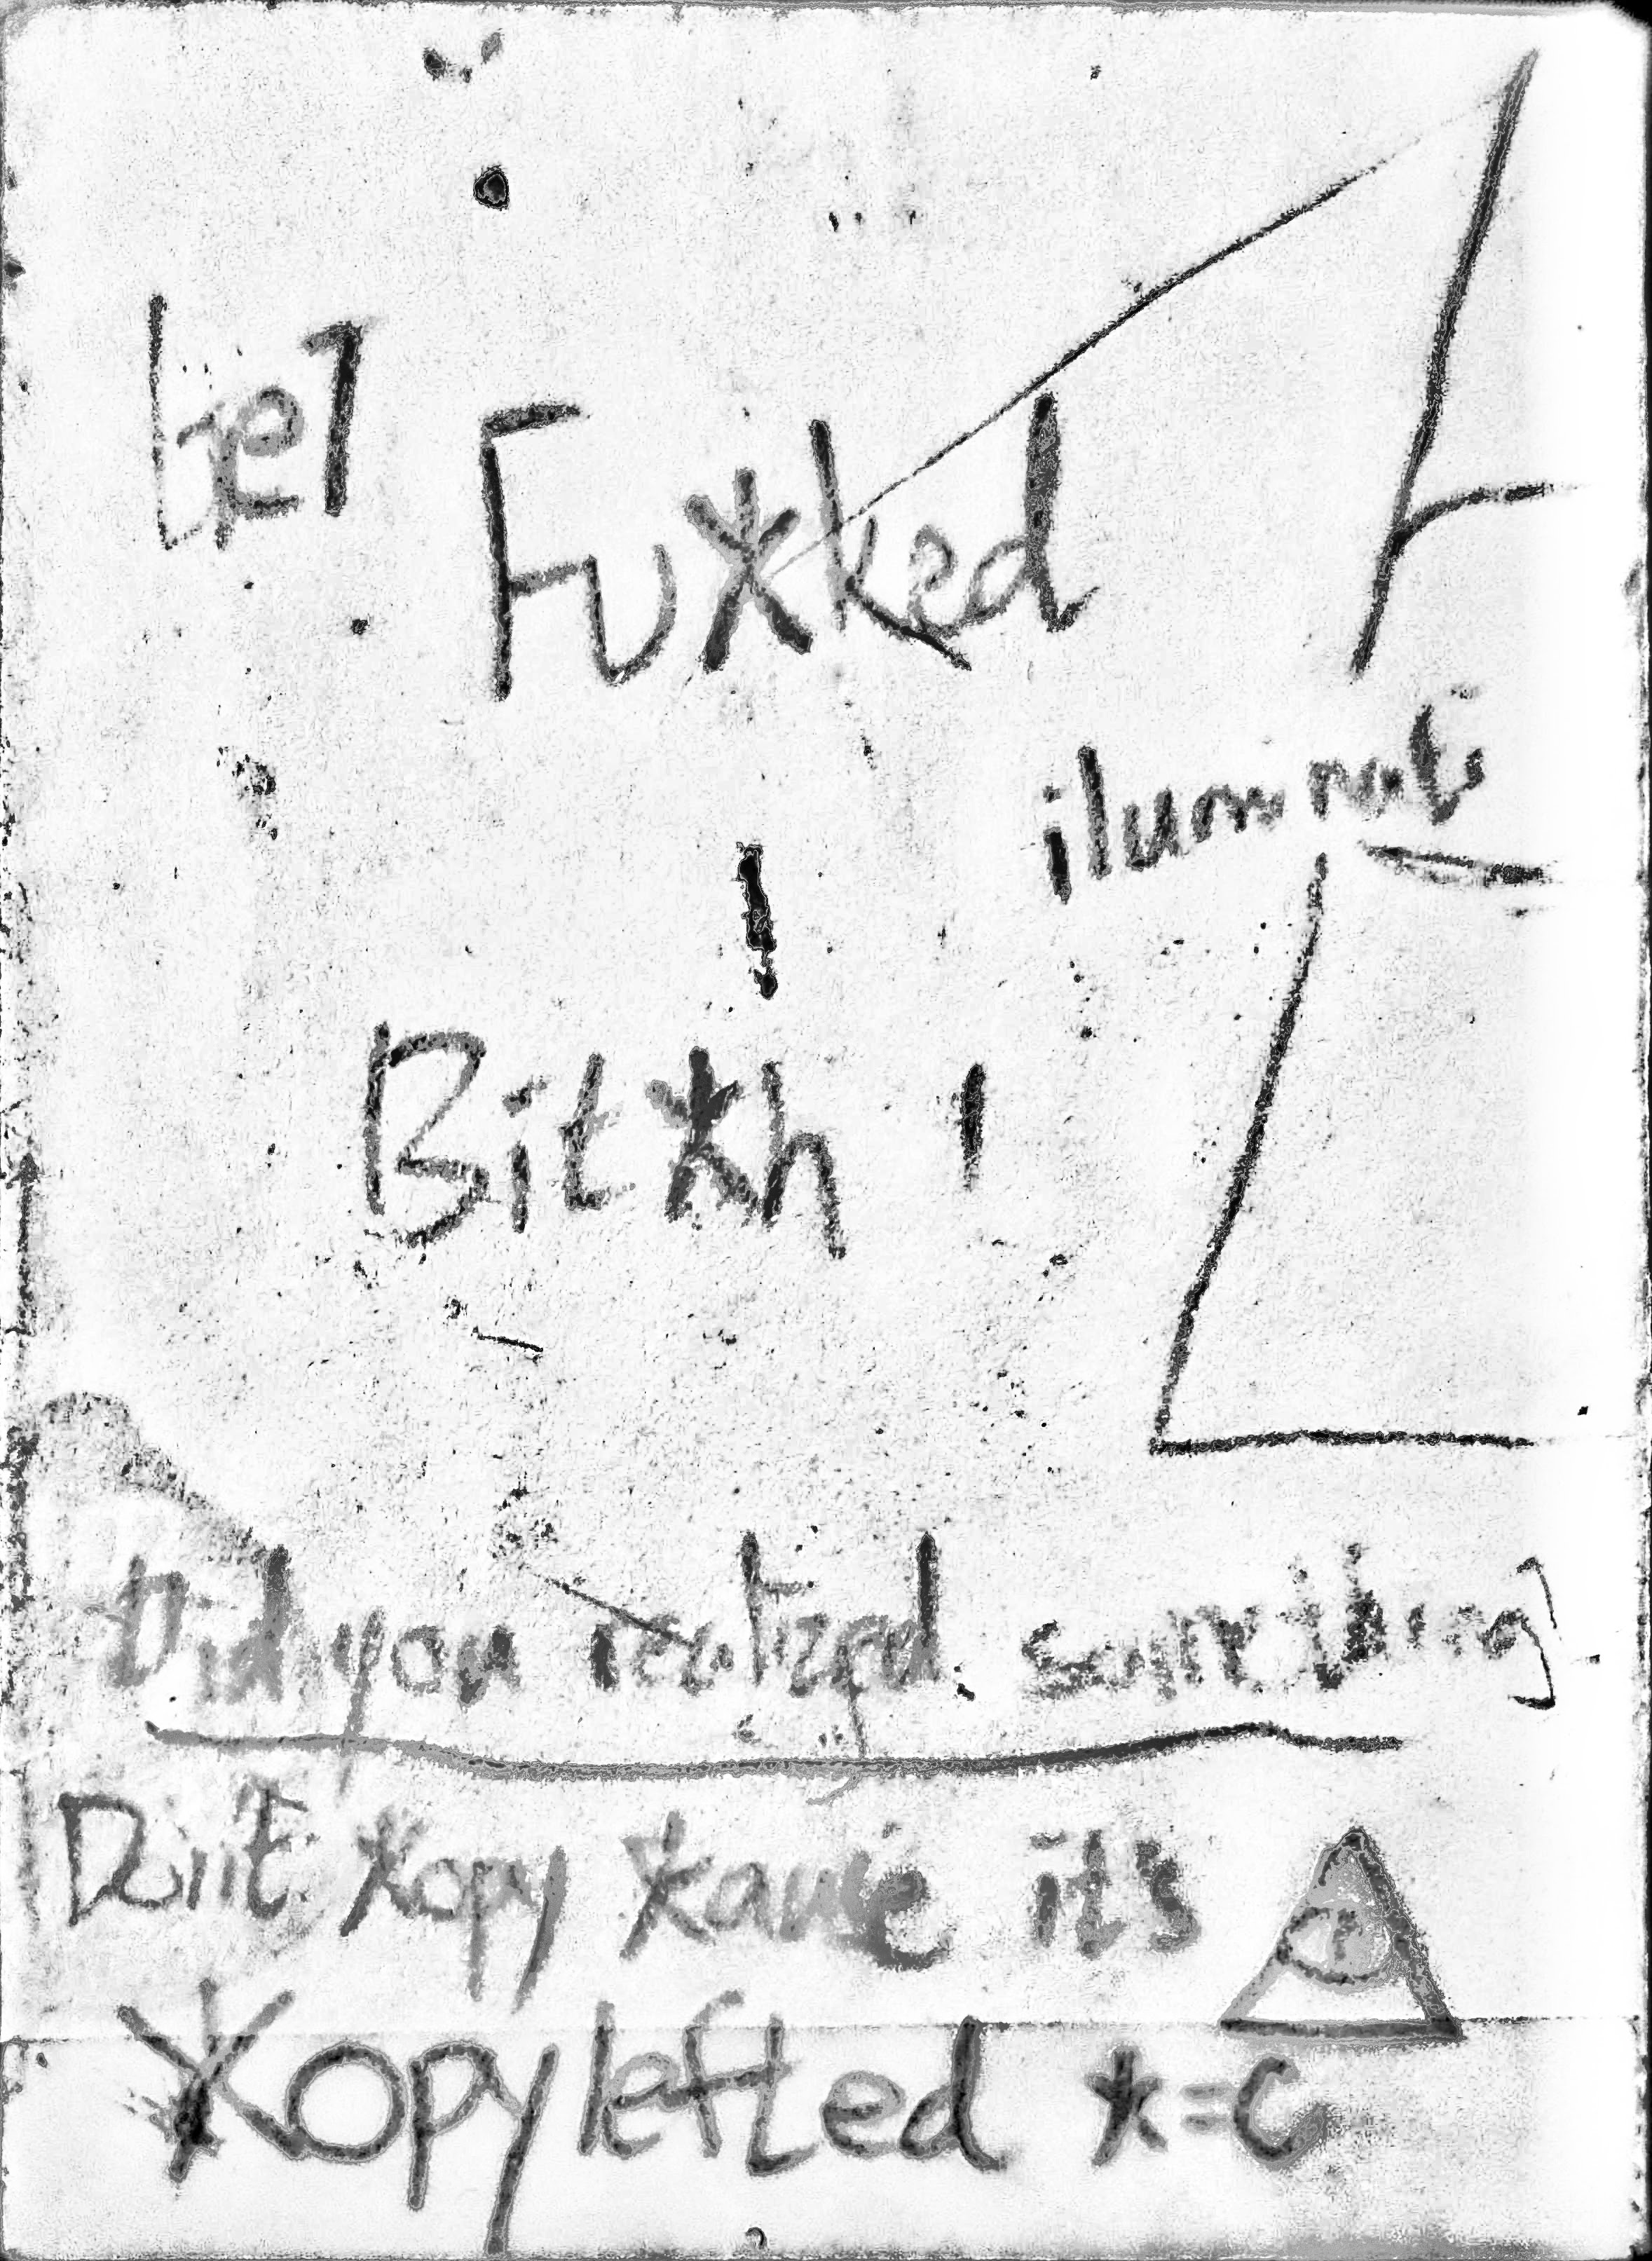 Get
Fu*ked
iluminati
!
Bit*h !
Did you realized something
Don't *opy *ause it's
*opylefted *=C